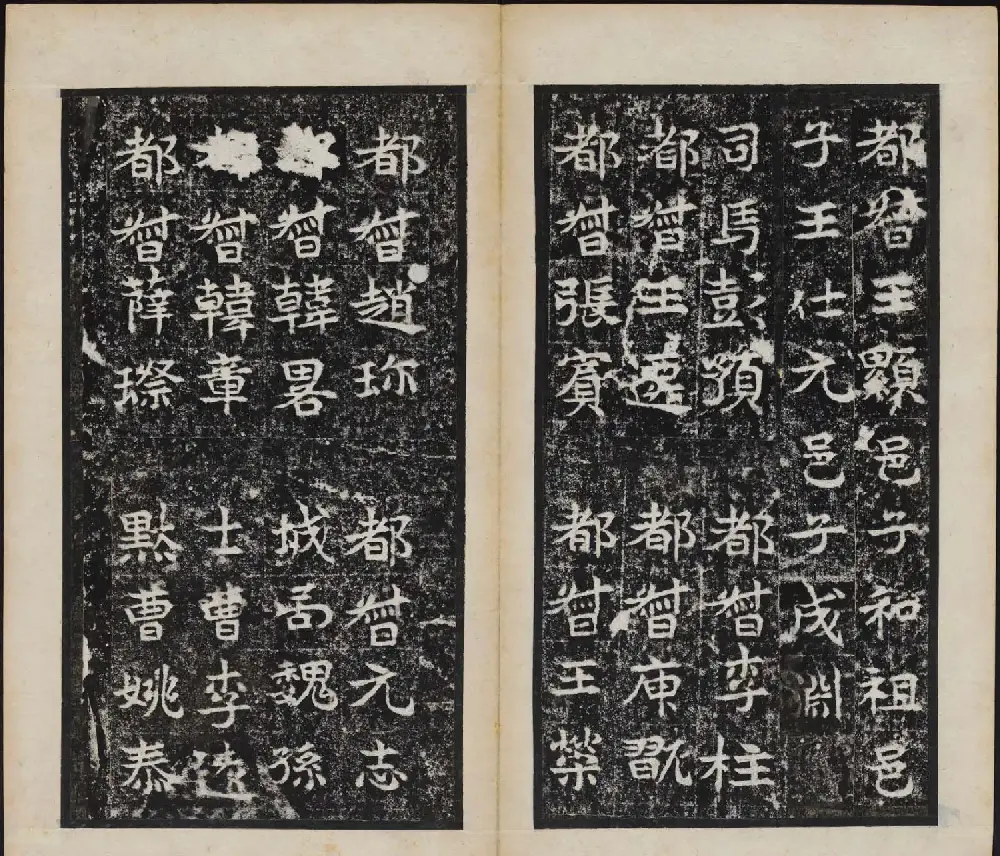 都督王顯邑子和祖邑
子王仕元邑子成淵
司馬彭 都督李柱
都督王遠 都督翫
都督張賓 都督王榮
都督趙珎 都督元志
督韓畧 城局魏孫
督韓章 士曹李
都督薛 曹姚泰